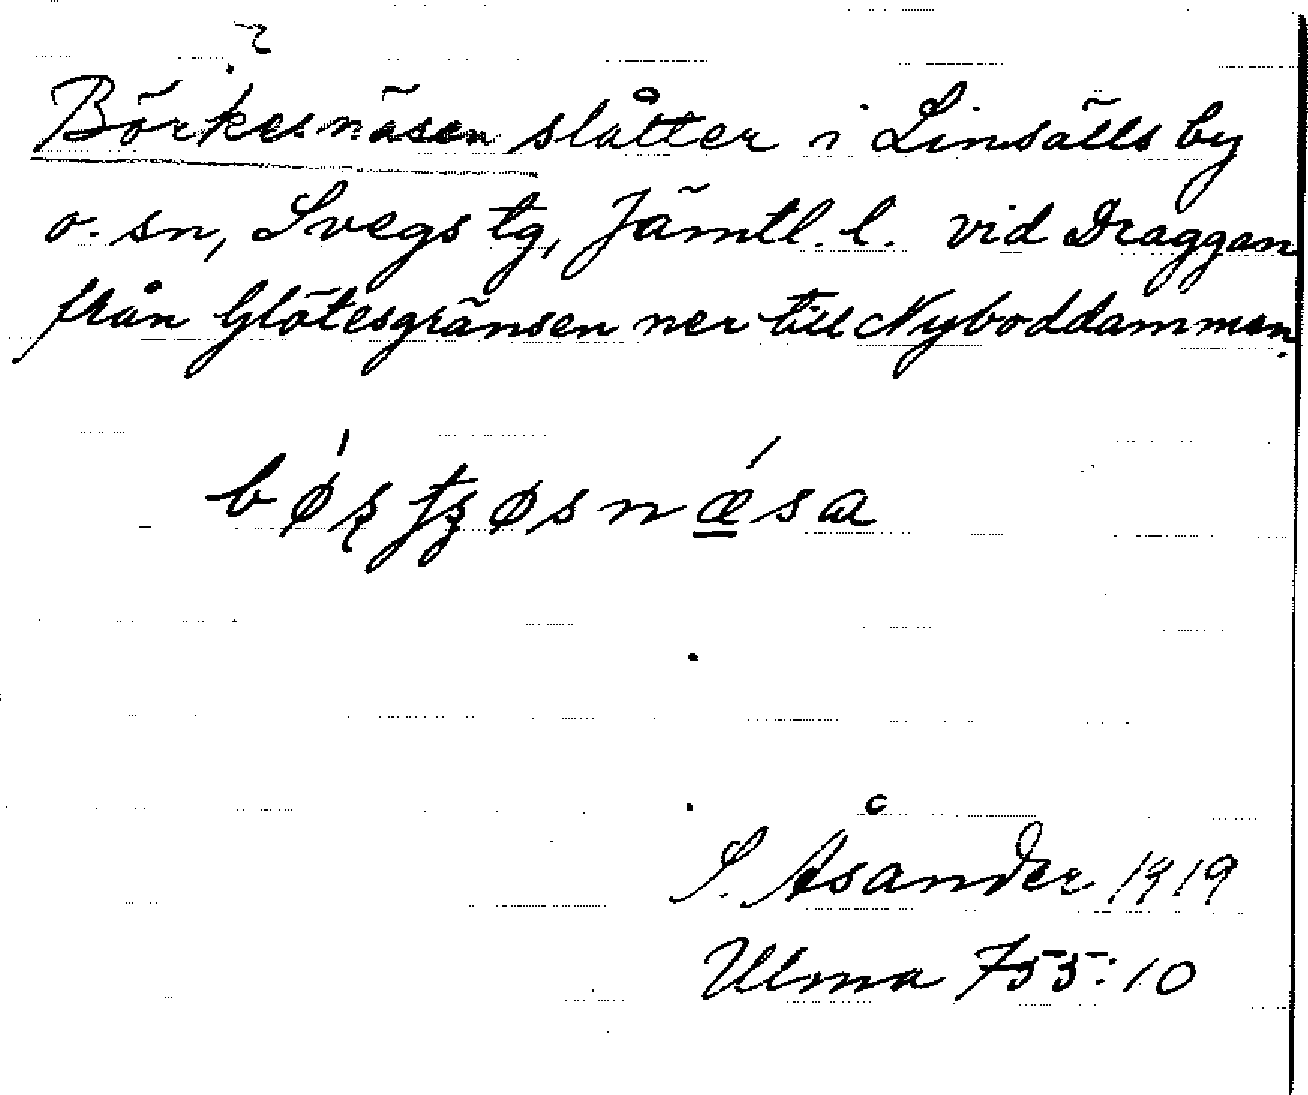 Börkesnäsen slåtter i Linsälls by
o. sn, Svegs tg, Jämtl. l. vid Draggan
från Glötesgränsen ner till Nyboddammen.
S. Åsander 1919
Ulma 755:10